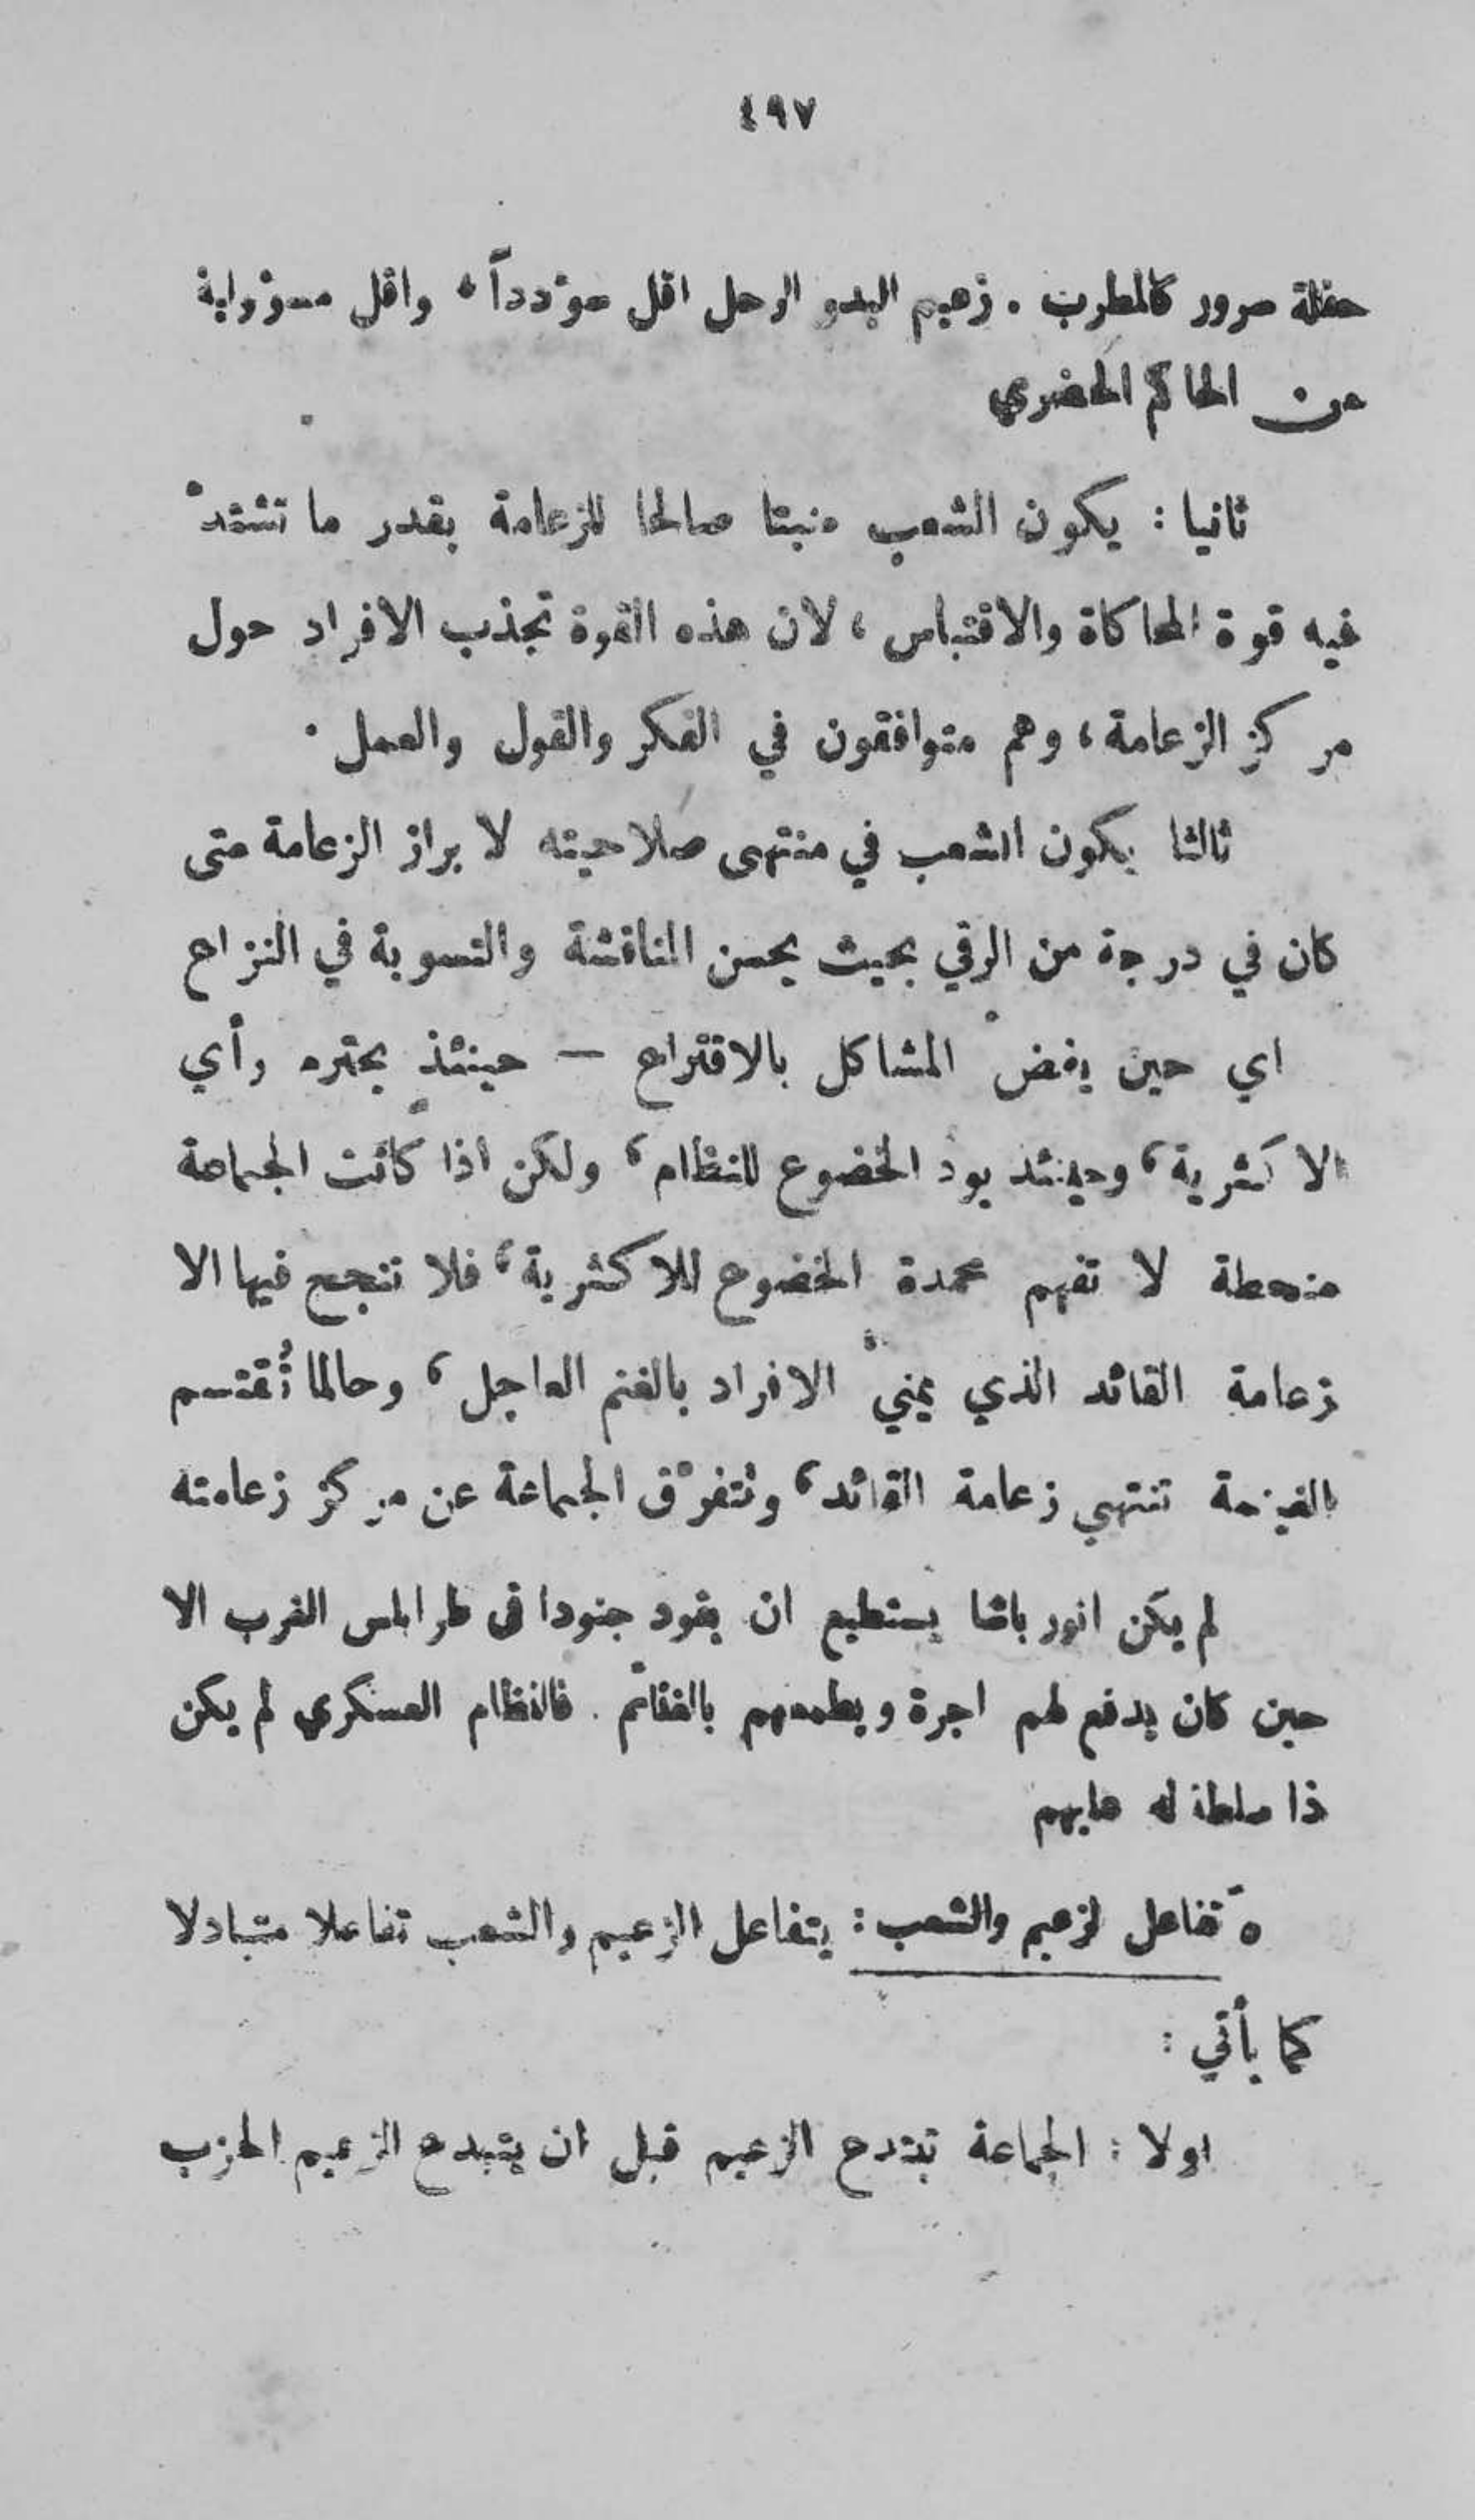 ٤٩٧
حفلة سرور كالمطرب . زعيم البدو الرحل اقل سؤدداً ، واقل مسؤولية
من الحاكم الحضري
ثانيا : يكون الشعب منبتا صالحا للزعامة بقدر ما تشتدّ
فيه قوة المحاكاة والاقتباس ، لان هذه القوة تجذب الافراد حول
مركز الزعامة ، وهم متوافقون في الفكر والقول والعمل .
ثالثا يكون الشعب في منتهى صلاحيته لا براز الزعامة متى
كان في درجة من الرقي بحيث يحسن المناقشة والتسوية في النزاع
اي حين يفضّ المشاكل بالاقتراع — حينئذٍ يحترم رأي
الاكثرية ، وحينئذ يودّ الخضوع للنظام ، ولكن اذا كانت الجماعة
منحطة لا تفهم محمدة الخضوع للاكثرية ، فلا تنجح فيها الا
زعامة القائد الذي يمنيّ الافراد بالغنم العاجل ، وحالما تُقتسم
الغنيمة تنتهي زعامة القائد ، وتتفرّق الجماعة عن مركز زعامته
لم يكن انور باشا يستطيع ان يقود جنودا في طرابلس الغرب الا
حين كان يدفع لهم اجرة ويطمعهم بالغنائم . فالنظام العسكري لم يكن
ذا سلطة له عليهم
٥ تفاعل الزعيم والشعب : يتفاعل الزعيم والشعب تفاعلا متبادلا
كما يأتي :
اولا : الجماعة تبتدع الزعيم قبل ان يبتدع الزعيم الحزب